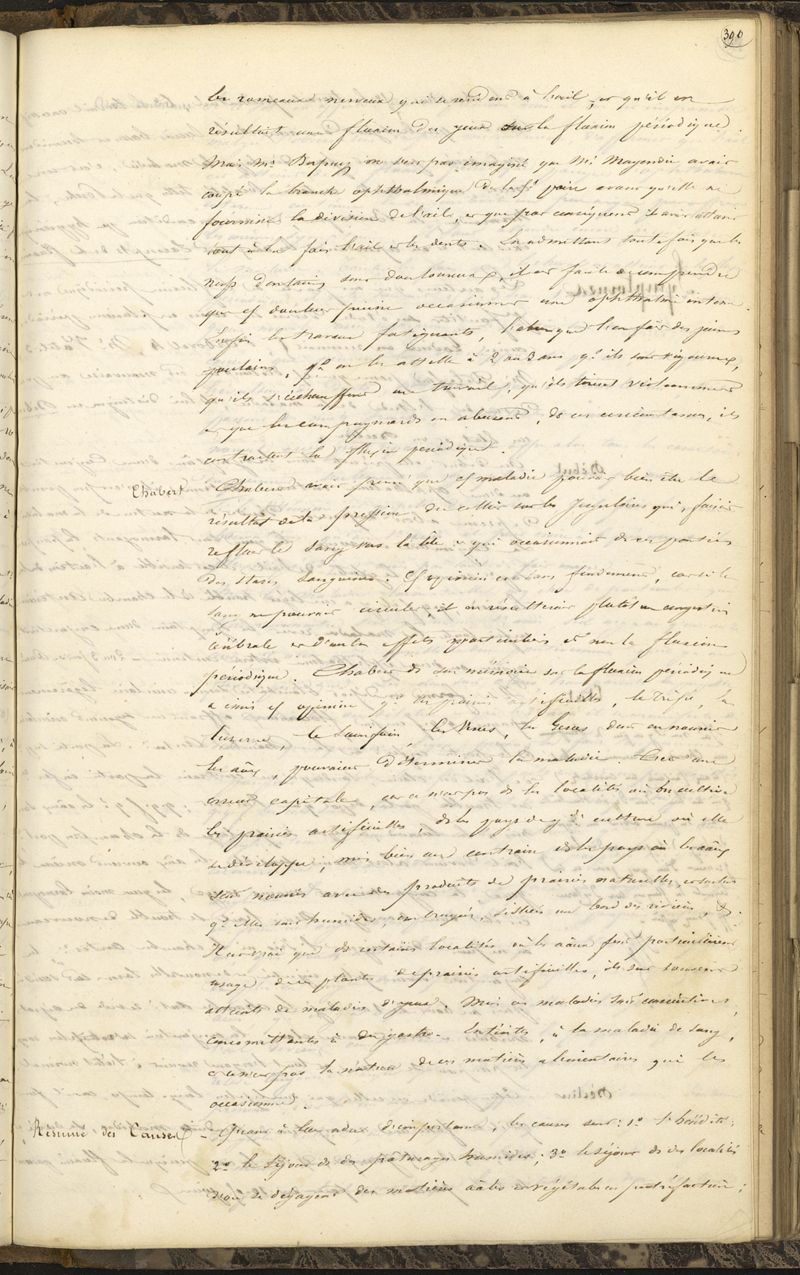 390
les rameaux nerveux qui se rendent à l'œil, et qu'il en
résultait une fluxion des yeux la fluxion périodique.
Mais Mr ne sera pas imaginé que Mr Magendie avait
coupé la branche ophthalmique de la 5e paire avant qu'elle ne
fournisse la division de l'œil, et que par conséquent
tout à la fois l'œil et les dents. En admettant toutefois que les
nerfs dentaires sont douloureux, il est facile de comprendre
que cette douleur puisse occasionner une ophthalmie interne.
Enfin les travaux fatiguants, l'abus que l'on fait des jeunes
poulains, qd on les attelle à 2 ou 3 ans qd ils sont vigoureux,
qu'ils s'échauffent au travail, qu'ils tirent violemment
et que les campagnards en abusent, de ces circonstances, ils
contractent la fluxion périodique.
Chabert
Chabert avait pensé que cette maladie pouvait bien être le
résultat de la pression du collier sur les jugulaires qui, faisait
refluer le sang vers la tête et qui occasionnait de ces parties
des stases sanguines. Cette opinion est sans fondement, car si le
sang ne pouvait circuler, il en résulterait plutôt une congestion
cérébrale et d'autres effets particuliers et non la fluxion
périodique. Chabert ds son mémoire sur la fluxion périodique
a émis cette opinion que les prairies artificielles, le trèfle, la
luzerne, le sainfoin, les vesces, les gesses dont on nourrit
les aux, pouvaient déterminer la maladie. C'est une
erreur capitale, car ce n'est pas ds les localités où l'on cultive
les prairies artificielles, ds les pays de gde culture où elle
se développe, mais bien au contraire ds les pays où les aux
sont nourris avec des produits de prairies naturelles, surtout
qd elles sont humides, situées au bord des rivières, &.
Il est vrai que ds certaines localités où les aux font particulièrement
usage de ces plantes de prairies artificielles, ils sont souvent
atteints de maladies d'yeux. Mais ces maladies sont consécutives,
concomittantes à des gastro-entérites, à la maladie de sang,
et ce n'est pas la nature de ces matières alimentaires qui les
occasionnent.
Résumé des Causes
- Quant à leur ordre d'importance, les causes sont: 1o l'hérédité;
2o le séjour ds des pâturages humides; 3o le séjour ds des localités
d'où se dégagent des matières ales et végétales en putréfaction;